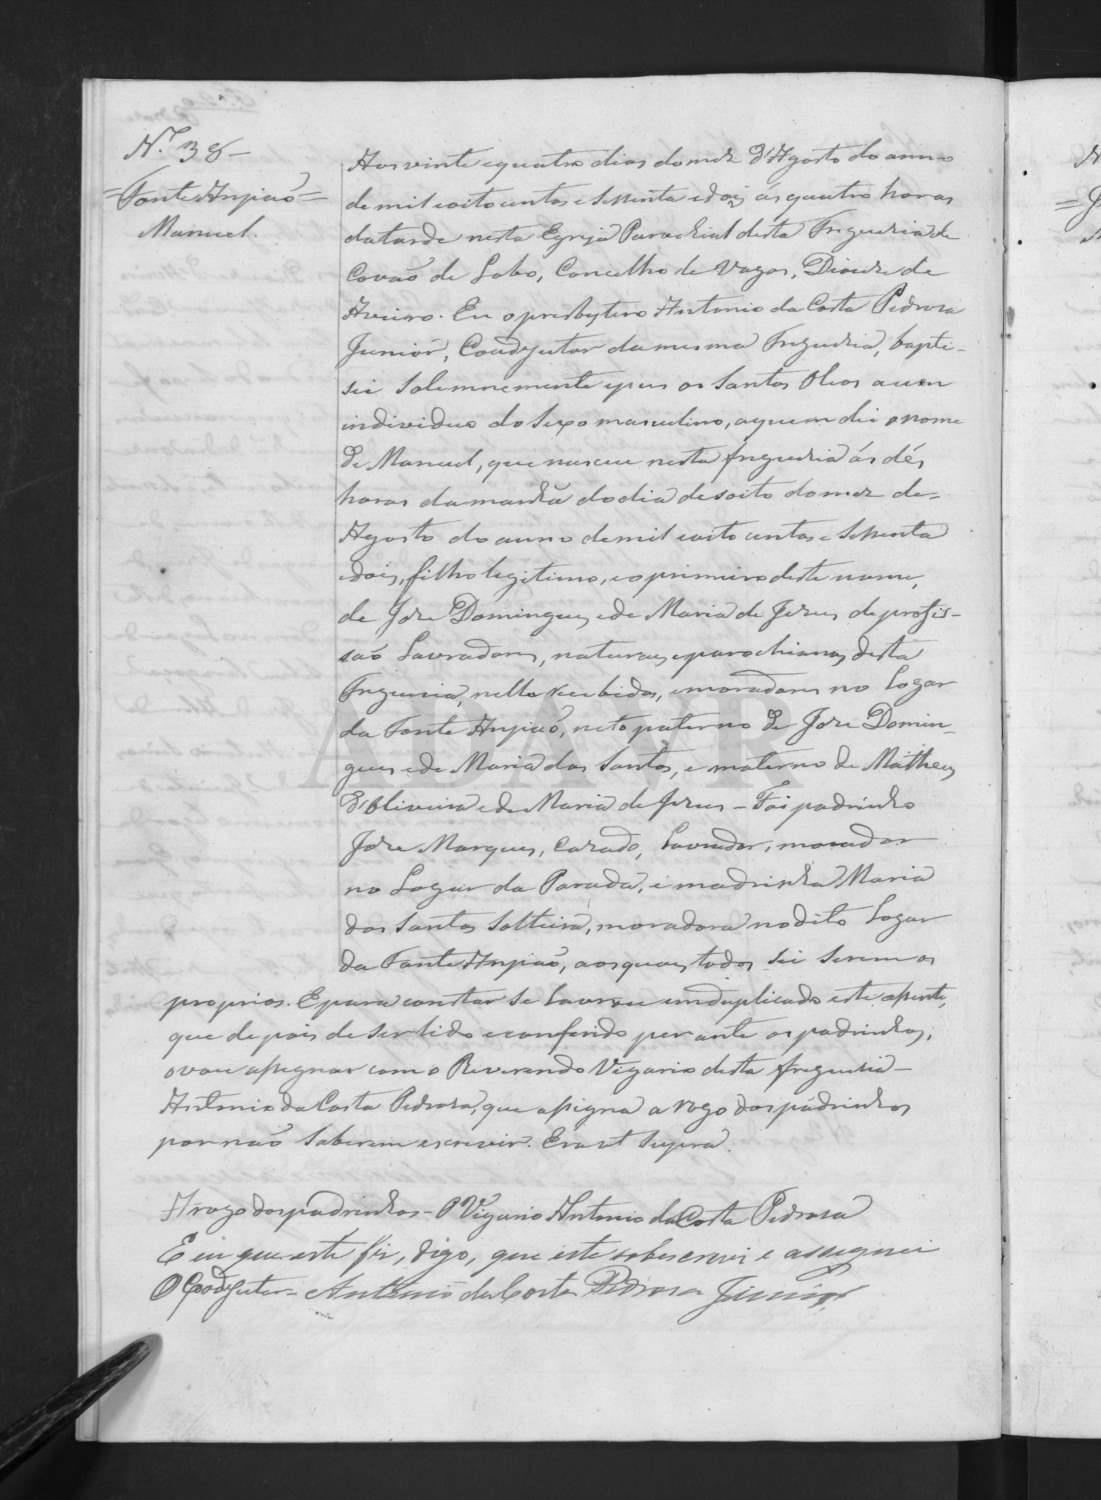 N.º 38 -
= Fonte Anjiaõ =
Manuel.
Aos vinte e quatro dias do mez d'Agosto do anno
de mil e oito centos e sessenta e dois ás quatro horas
da tarde nesta Egreja Parochial desta Freguezia de
Covaõ de Lobo, Concelho de Vagos, Dioceze de
Aveiro. Eu o presbytero Antonio da Costa Pedrosa
Junior, Coadjutor da mesma Freguezia, bapti-
sei solemnemente e puz os Santos Oleos a um
individuo do sexo masculino, a quem dei o nome
de Manuel, que nasceu nesta freguezia ás dés
horas da manhã do dia desoito do mez de-
Agosto do anno de mil e oito centos e sessenta
e dois, filho legitimo, e o primeiro deste nome,
de Joze Domingues e de Maria de Jezus de profis-
saõ Lavradores, naturaes e parochianos desta
Freguezia, nella recebidos, e moradores no Logar
da Fonte Anjiaõ, neto paterno de Joze Domin-
gues e de Maria dos Santos, e materno de Matheus
d'Oliveira e de Maria de Jezus - Foi padrinho
Joze Marques, cazado, Lavrador, morador
no Logar da Parada, e madrinha Maria
dos Santos Solteira, moradora no dito Logar
da Fonte Anjiaõ, aos quaes todos sei serem os
proprios. E para constar se lavrou em duplicado este assento,
que depois de ser lido e conferido perante os padrinhos,
o vou assignar com o Reverendo Vigario desta freguezia -
Antonio da Costa Pedrosa, que assigna a rogo dos padrinhos
por naõ saberem escrever. Era ut supra.
A rogo dos padrinhos - O Vigario Antonio da Costa Pedrosa
E eu que este fiz, digo, que este sobescrevi e assignei
O Coadjutor - Antonio da Costa Pedrosa Junior
ADAVR